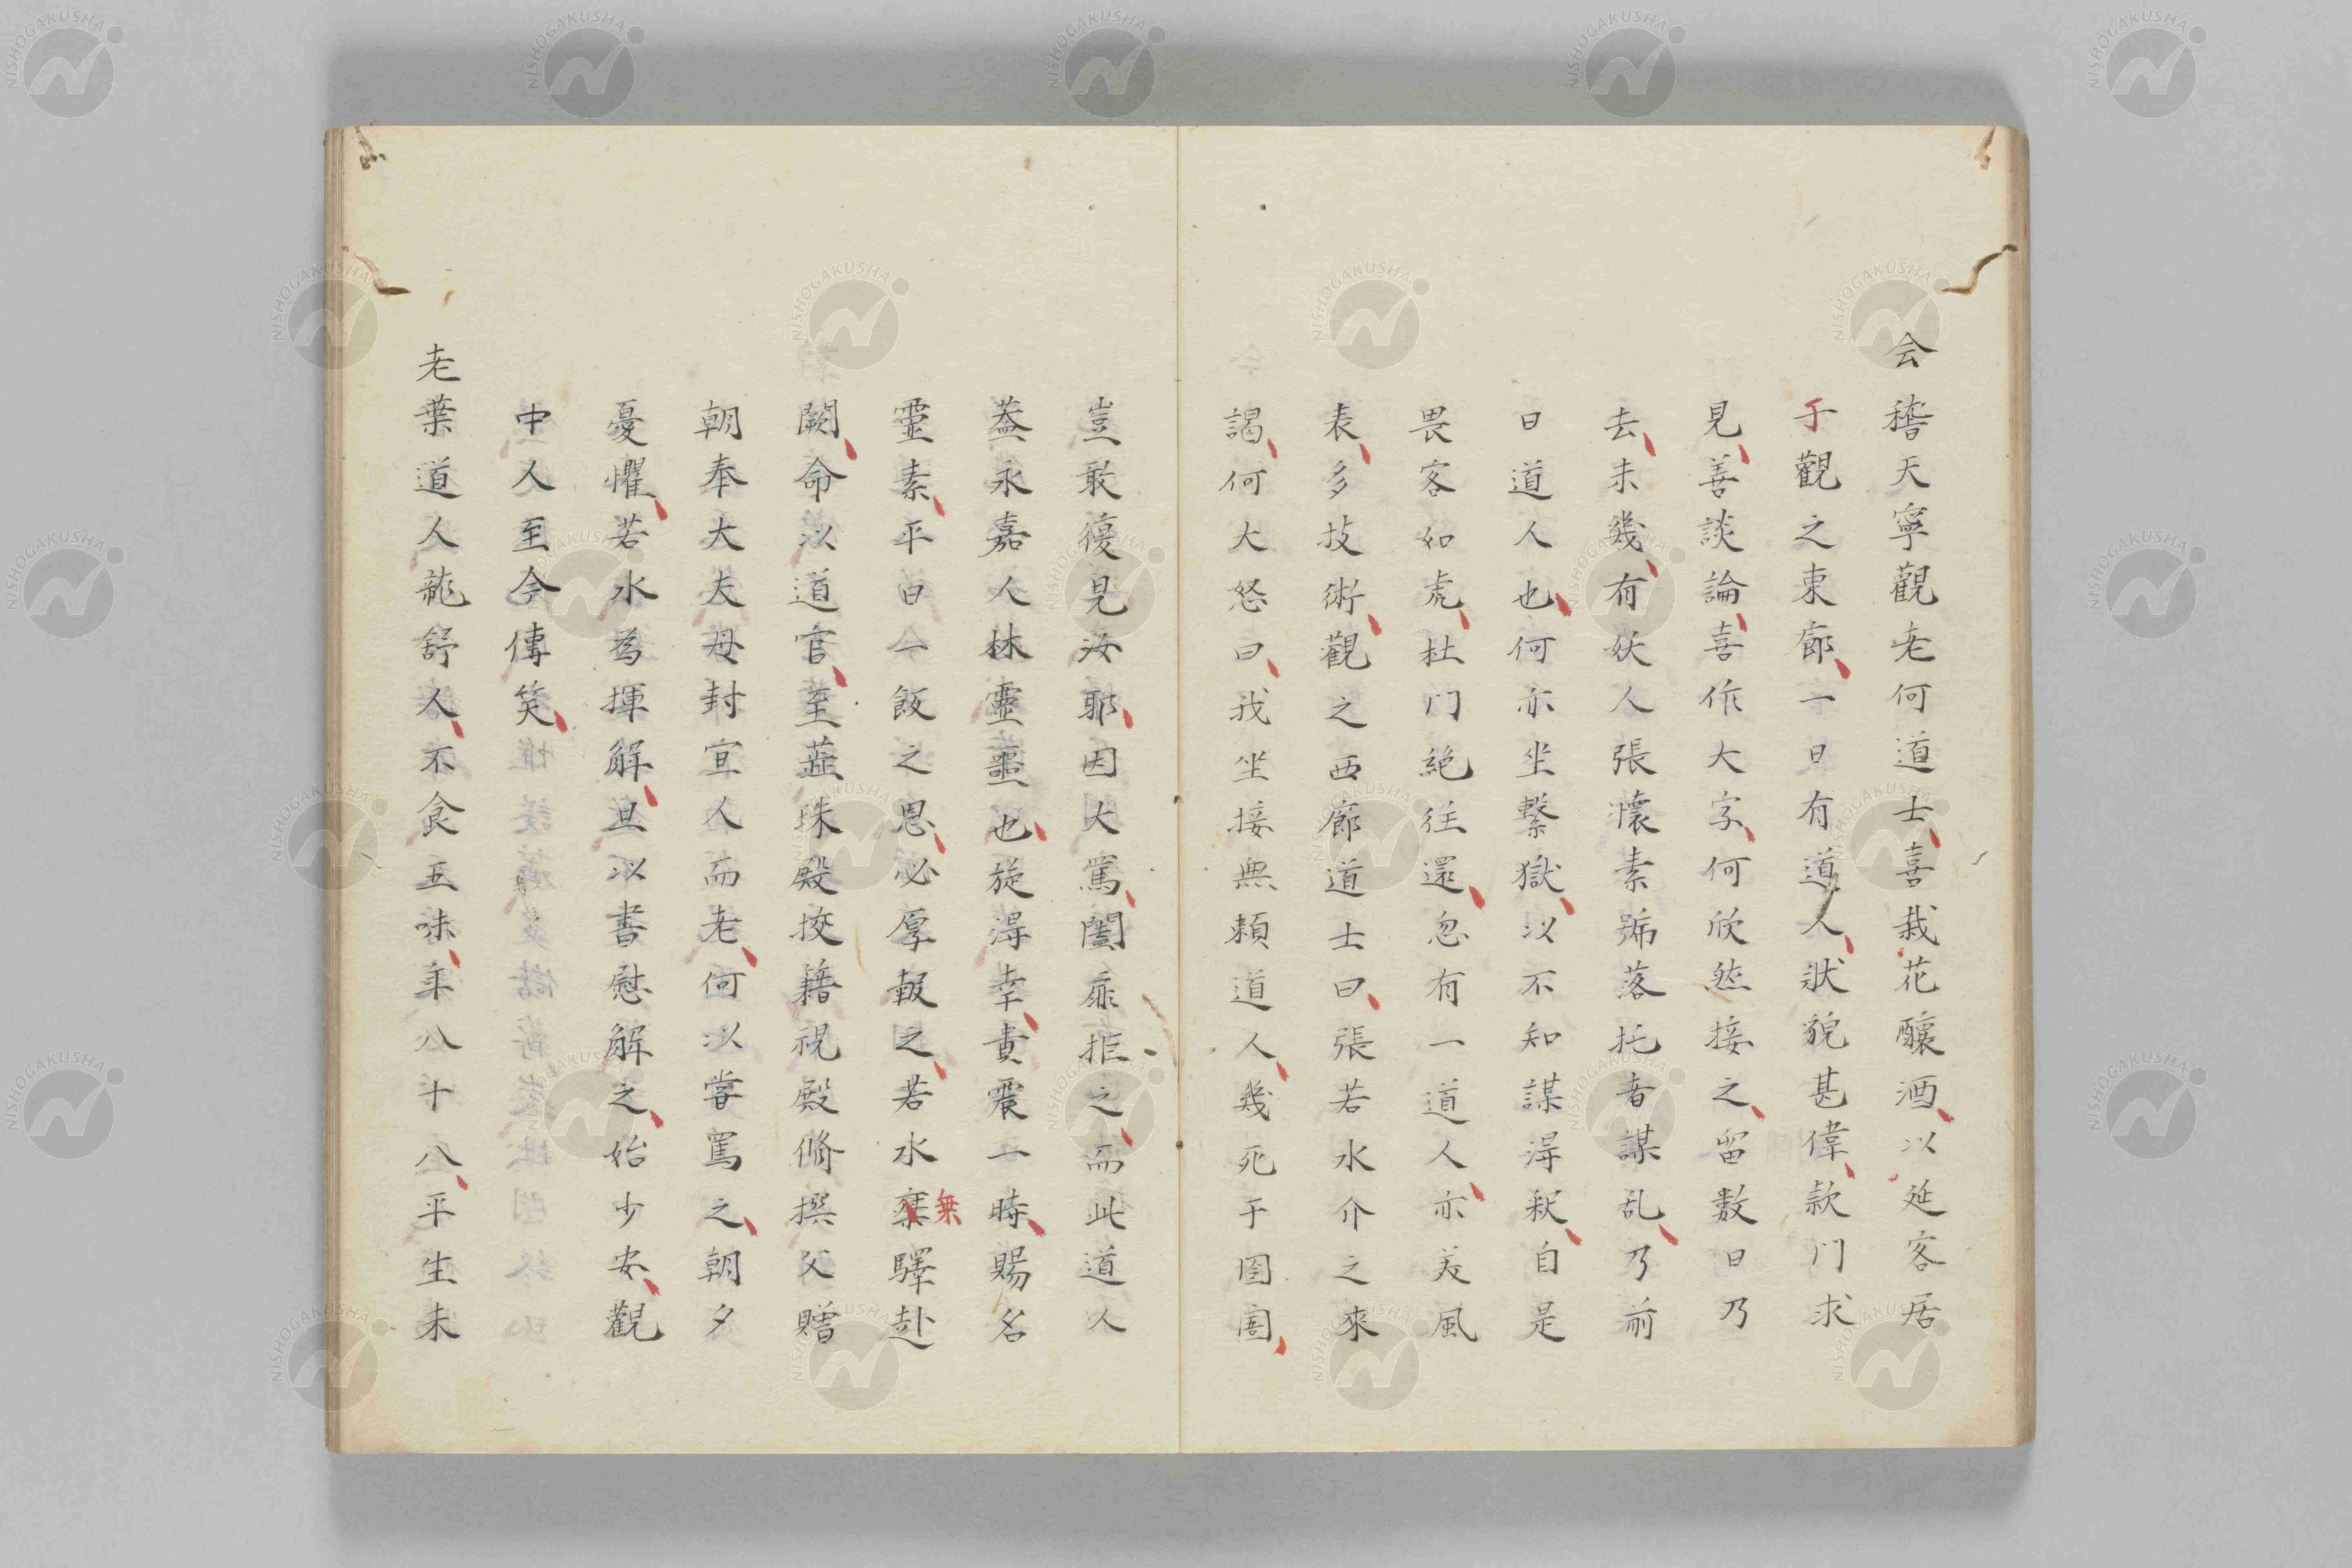 会稽天寧觀老何道士喜栽花釀酒以延客居
于觀之東廊一日有道人狀貌甚偉款門求
見善談論喜作大字何欣然接之留數日乃
去未幾有妖人張懷素號落托者謀乱乃前
日道人也何亦坐繫獄以不知謀得釈自是
畏客如虎杜门絶往還忽有一道人亦美風
表多技術觀之西廊道士曰張若水介之來
謁何大怒曰我坐接無頼道人幾死于囹圄
豈敢復見汝耶因大罵闔扉拒之而此道人
蓋永嘉人林靈噩也旋得幸貴震一時賜名
靈素平日一飯之恩必厚報之若水乘驛赴
無
闕命以道官至蘂珠殿挍籍視殿脩撰父贈
朝奉大夫母封宜人而老何以嘗罵之朝夕
憂懼若水為揮解且以書慰解之始少安觀
中人至今傳笑
老葉道人龍舒人不食五味年八十八平生未
NISHOGAKUSHA